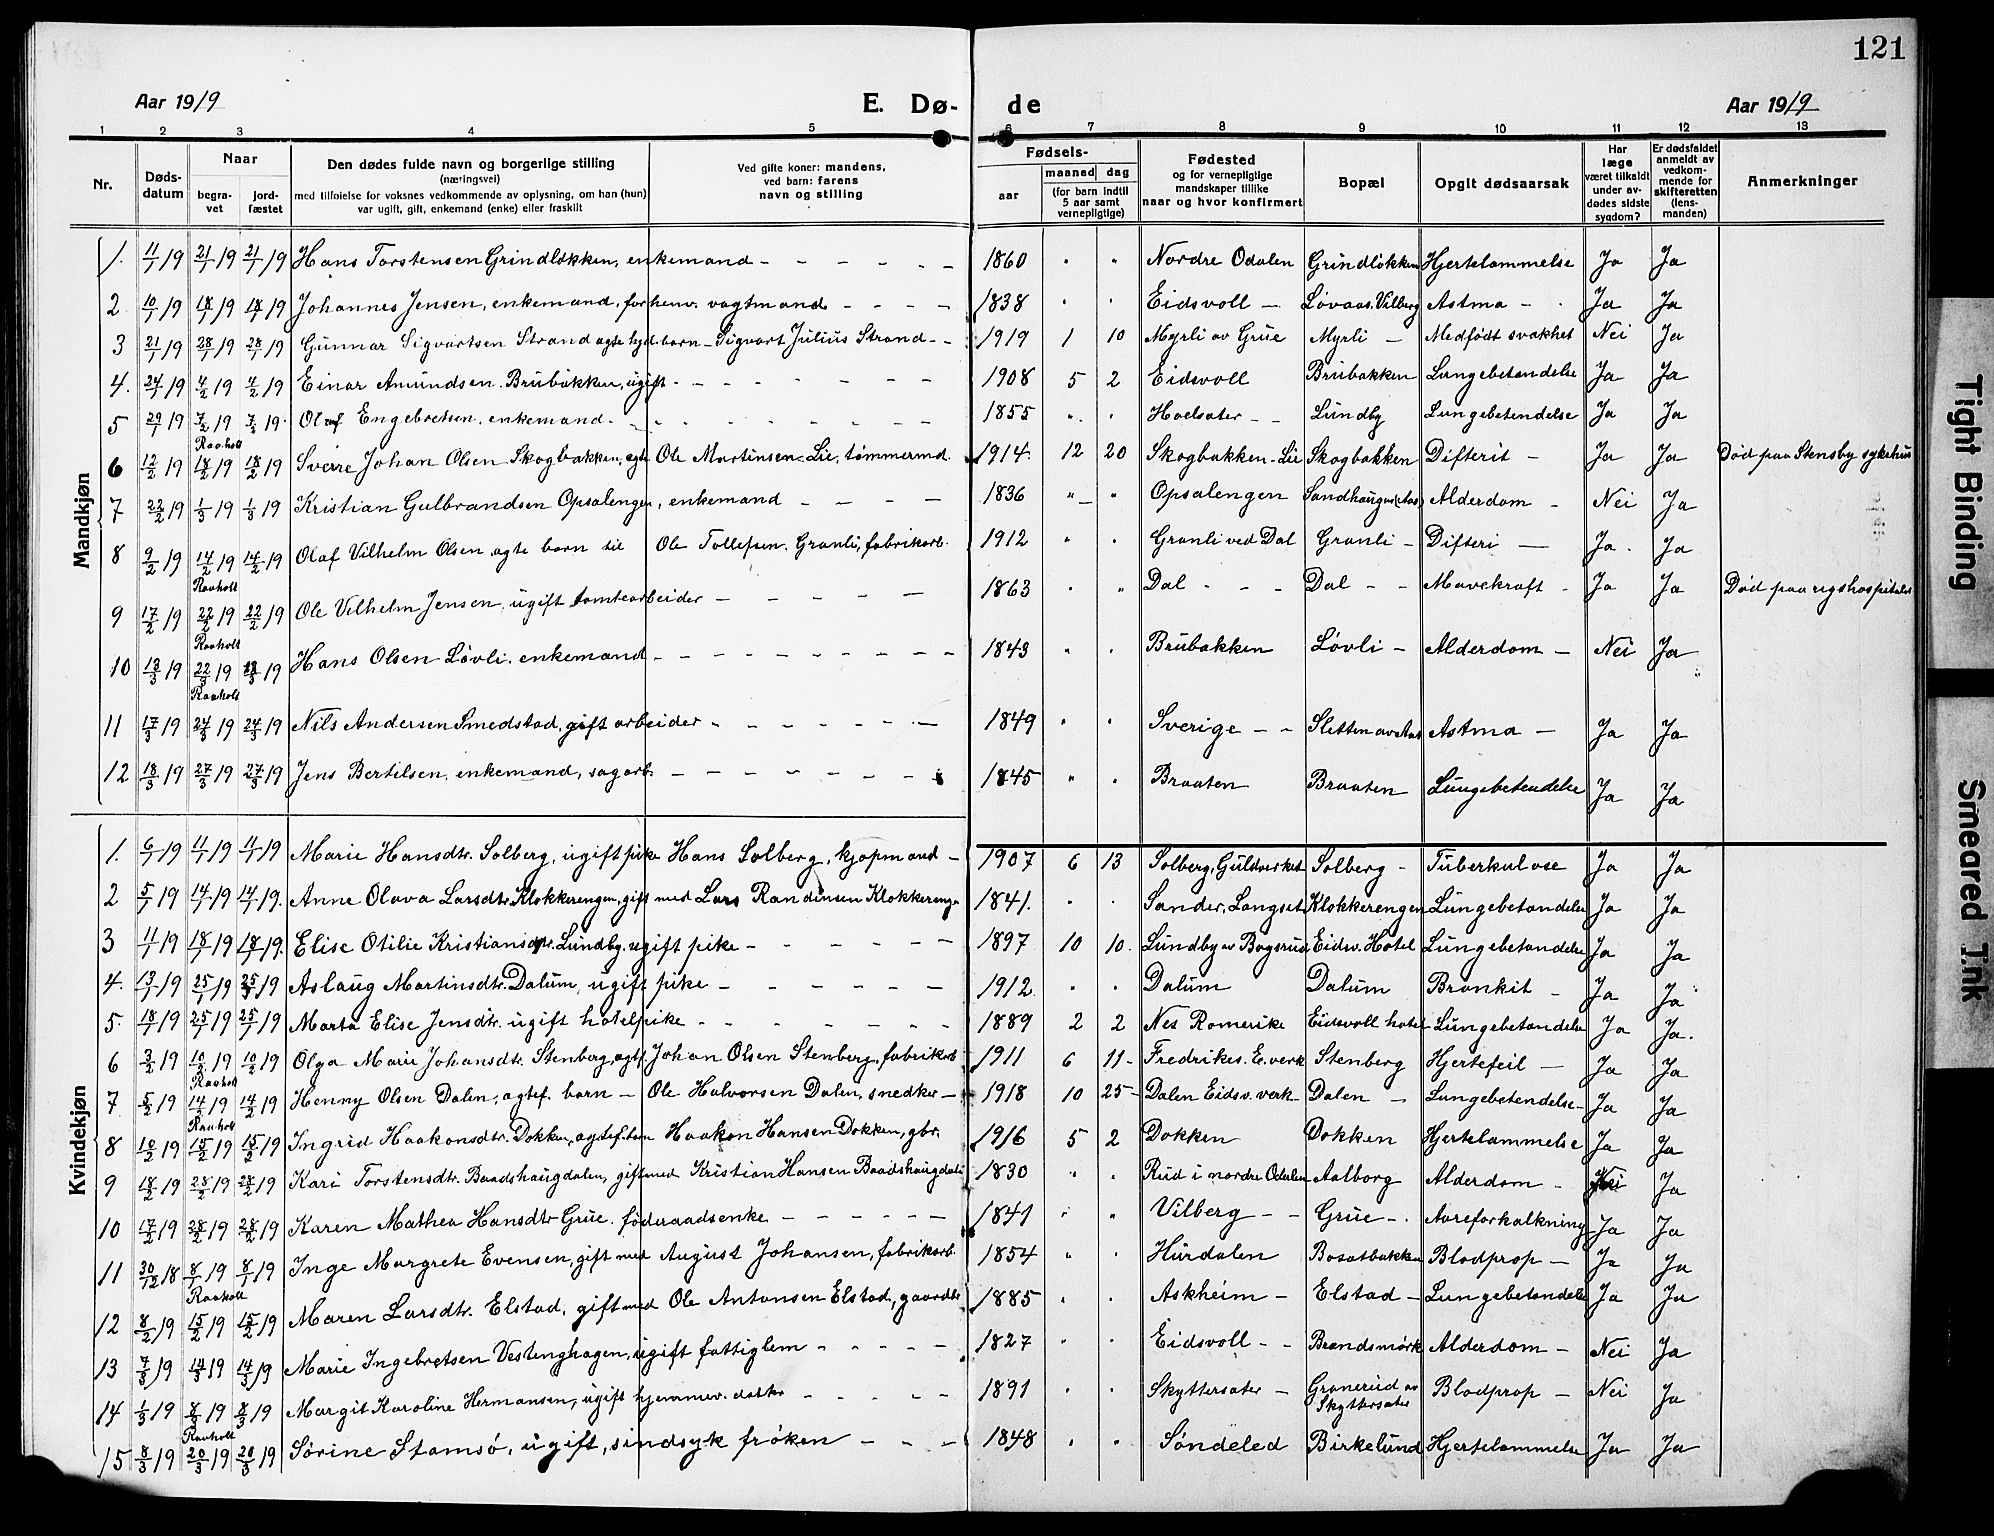 121
Aar 1919 E. Dø- de Aar 1919
1 2 3 4 5 6 7 8 9 10 11 12 13
Nr. Døds-datum Naar begra-vet jord-fæstet Den dødes fulde navn og borgerlige stilling (næringsvei) med tilføielse for voksnes vedkommende av oplysning, om han (hun) var ugift, gift, enkemand (enke) eller fraskilt Ved gifte koner: mandens, ved barn: farens navn og stilling Fødsels- aar maaned dag (for barn indtil 5 aar samt vernepligtige) Fødested og for vernepligtige mandskaper tillike naar og hvor konfirmert Bopæl Opgit dødsaarsak Har læge været tilkaldt under av-dødes sidste sygdom? Er dødsfaldet anmeldt av vedkom-mende for skifteretten (lens-manden) Anmerkninger
Mandkjøn
1. 11/1 19 21/1 19 21/1 19 Hans Torstensen Grindløkken, enkemand - - - - - 1860 " " Nordre Odalen Grindløkken Hjertelammelse Ja Ja
2. 10/1 19 18/1 19 18/1 19 Johannes Jensen, enkemand, forhenv. vagtmand - - - - 1838 " " Eidsvoll - Løvaas, Vilberg Astma - Ja Ja
3 21/1 19 28/1 19 28/1 19 Gunnar Sigvartsen Strand ægte hjd. barn - Sigvart Julius Strand - - 1919 1 10 Myrli av Grue Myrli - Medfødt svakhet Nei Ja
4. 24/1 19 4/2 19 4/2 19 Einar Amundsen Brubakken, ugift - - - - - - - 1908 5 2 Eidsvoll Brubakken Lungebetændelse Ja Ja
5 29/1 19 7/2 19 7/2 19 Olaf Engebretsen, enkemand - - - - - - - 1855 " " Hoelsæter - Lundby Lungebetendelse Ja Ja
Raaholt
6 12/2 19 18/2 19 18/2 19 Sverre Johan Olsen Skogbakken, egte Ole Martinsen Lie, tømmermd. 1914. 12 20 Skogbakken - Lie Skogbakken Difterit - Ja Ja Død paa Stensby sykehus
7 22/2 19 1/3 19 1/3 19 Kristian Gulbrandsen Opsalengen, enkemand - - - - 1836 " " Opsalengen Sandhaugen (Aas) Alderdom - Nei Ja
8 9/2 19 14/2 19 14/2 19 Olaf Vilhelm Olsen ægte barn til Ole Tollefsen Granli, fabrikarb. 1912 " " Granli ved Dal Granli - Difteri - Ja. Ja
Raaholt
9 17/2 19 22/2 19 22/2 19 Ole Vilhelm Jensen, ugift tomtearbeider - - - - - 1863 " " Dal - - - Dal - - Mavekræft - Ja Ja Død paa rigshospitalet
Raaholt
10 13/3 19 22/3 19 Hans Olsen Løvli, enkemand - - - - - - - - - 1843 " " Brubakken Løvli - Alderdom - Nei Ja
Raaholt
11 17/3 19 24/3 19 24/3 19 Nils Andersen Smedstad, gift arbeider - - - - - - - 1849 " " Sverige - - Sletten av Aas Astma - Ja Ja
12 18/3 19 27/3 19 27/3 19 Jens Bertelsen, enkemand, sagarb. - - - - - - - 1845 " " Braaten Braaten Lungebetendelse Ja Ja
Kvindekjøn
1. 6/1 19 11/1 19 11/1 19 Marie Hansdtr. Solberg, ugift pike Hans Solberg, kjøpmand - 1907 6 13 Solberg, Guldverket Solberg - Tuberkulose Ja Ja
2 5/1 19 14/1 19 14/1 19. Anne Olava Larsdtr. Klokkerengen, gift med Lars Randinsen Klokkereng. 1841. " " Sander, Langset Klokkerengen Lungebetændelse Ja Ja
3 11/1 19 18/1 19 18/1 19. Elise Otilie Kristiansdtr. Lundby. ugift pike - - - - - - 1897 10 10. Lundby av Bøgsrud Eidsv. Hotel Lungebetændelse Ja Ja
4. 13/1 19 25/1 19 25/1 19 Aslaug Martinsdtr. Dalum, ugift pike - - - - - - 1912. " " Dalum Dalum Bronkit - Ja Ja
5. 18/1 19 25/1 19 25/1 19 Marta Elise Jensdtr. ugift hotelpike - - - - - - - 1889 2 2 Nes Romerike Eidsvoll hotel Lungebetændelse Ja Ja.
6 3/2 19 10/2 19 10/2 19 Olga Marie Johansdtr. Stenberg, agtf. Johan Olsen Stenberg, fabrikarb. 1911 6 11 - Fredrikes. E.verk Stenberg Hjertefeil - Ja Ja
Raaholt
7 5/2 19 14/2 19 14/2 19 Henny Olsen Dalen, agtef. barn - Ole Halvorsen Dalen, snedker - 1918 10 25 - Dalen Eidsv. verk - Dalen - Lungebetendelse - Ja Ja
Raaholt
8 10/2 19 15/2 19 15/2 19 Ingrid Haakonsdtr. Dokken, agtef. barn Haakon Hansen Dokken, gbr. 1916 5 2 Dokken Dokken Hjertelammelse Ja Ja
9 18/2 19 28/2 19 28/2 19 Kari Torstensdtr. Baadshaugdalen, gift med Kristian Hansen Baadshaugdal. 1830 " " Rud i nordre Odalen Aalborg Alderdom - Nei Ja
10 17/2 19 28/2 19 28/2 19 Karen Mathea Hansdtr Grue. føderaadsenke - - - - - - 1841 " " Vilberg - - Grue - . Aareforkalkning Ja Ja
11 30/12 18 8/1 19 8/1 19 Inge Margrete Evensen, gift med August Johansen, fabrikarb. 1854 " " Hurdalen Bosatbakken Blodprop - Ja Ja
Raaholt
12 8/2 19 15/2 19 15/2 19 Maren Larsdtr. Elstad, gift med Ole Antonsen Elstad, gaardbr. 1885 " " Askheim - Elstad - Lungebetændelse Ja Ja
13 7/3 19 14/3 19 14/3 19 Marie Ingebretsen Vestenghagen, ugift fattiglem - - - - - 1827 " " Eidsvoll - - Brandsmørk Alderdom - Nei Ja
14 1/3 19 8/3 19 8/3 19 Margit Karoline Hermansen, ugift hjemmev. datter - - - - - 1891 " " Skyttersæter - Granerud av Skyttersæter Blodprop - Nei Ja
Raaholt
15 8/3 19 20/3 19 20/3 19 Sørine Stamsø, ugift, sindsyk frøken - - - 1848 " " Søndeled Birkelund Hjertelammelse Ja Ja
Tight Binding
Smeared Ink